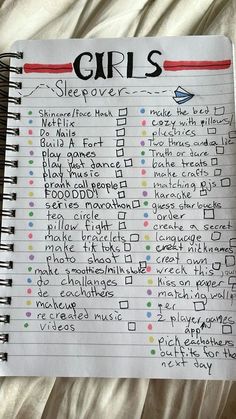 GIRLS
Sleepover
Skincare/Face Mask
Netflix
Do Nails
Build A Fort
play games
play just dance
play music
prank call people
FOOODDD!
series marathon
tea circle
pillow fight
make bracelets
make tik toks
photo shoot
make smoothies/milkshake
do challanges
do eachothers
makeup
recreated music
videos
make the bed
cozy with pillows/
plushies
Two thrus and a lie
Truth or dare
make treats
make crafts
matching pjs
karaoke
guess starbucks
order
create a secret
language
creat nicknames
creat own
wreck this
Kiss on paper
matching wallpa
per
2 player games
app
pick eachothers
outfits for the
next day